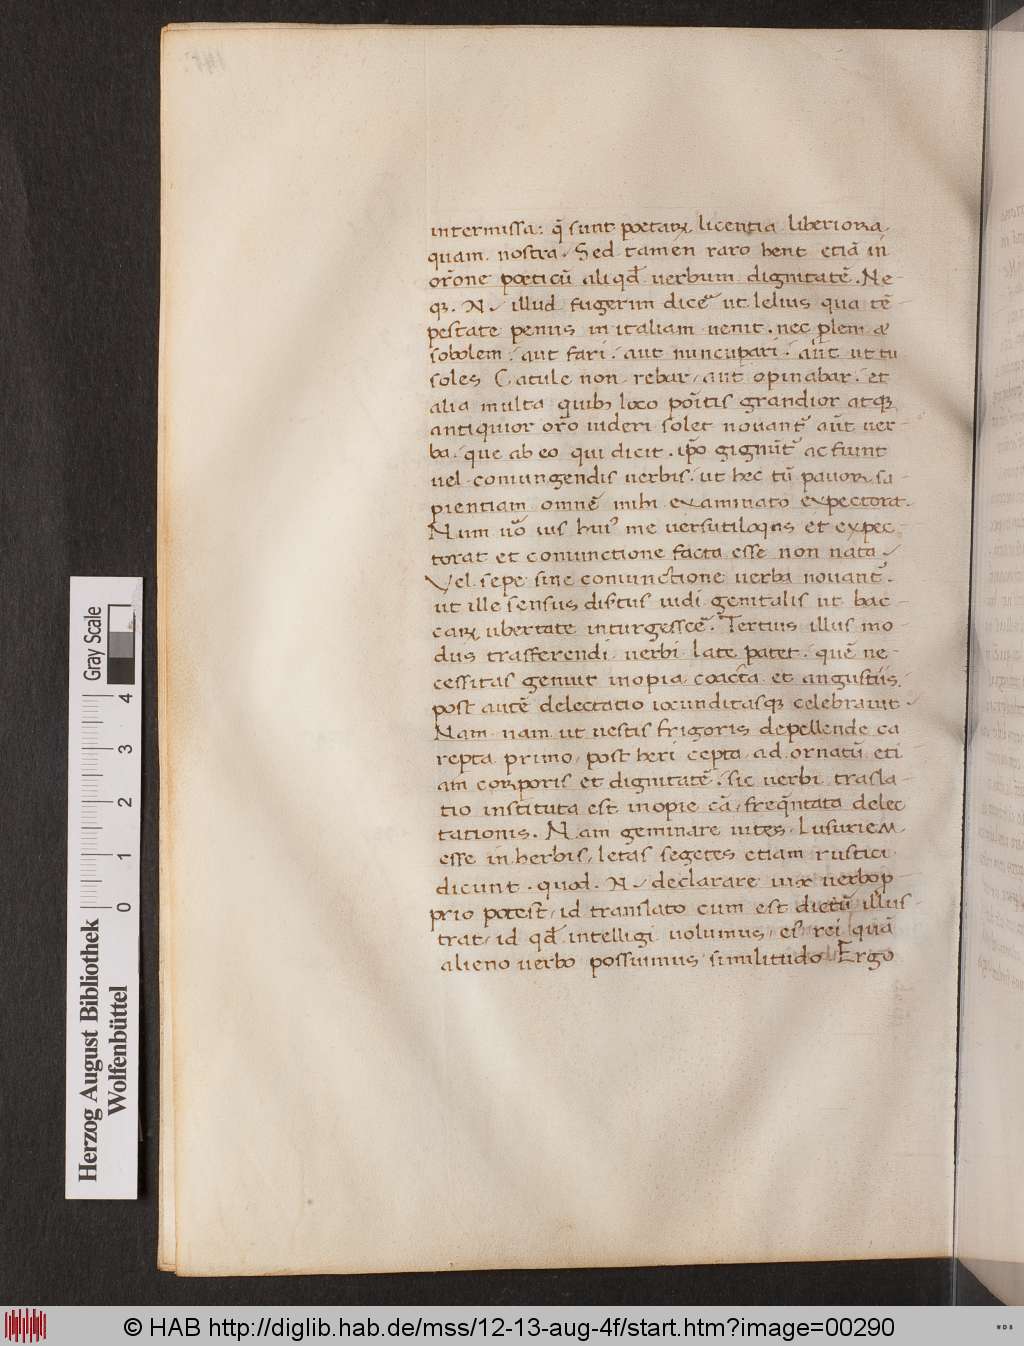 intermissa: q̃ sunt poetaꝝ licentia liberiora
quam nostra. Sed tamen raro hent etiã in
orõne poeticũ aliqd̃ verbum dignitatẽ. Ne-
qꝫ. N. illud fugerim dicẽ ut lelius qua tẽ-
pestate penus in italiam venit. nec plem æ
sobolem. aut fari. aut nuncupari. aũt ut tu
soles Catule non rebar, aut opinabar. et
alia multa quibꝫ loco põitis grandior atqꝫ
antiquior orõ videri solet novant᷑ aũt ver-
ba. que ab eo qui dicit. ip̃o gignũt᷑ ac fiunt
vel coniungendis verbis. ut hec tũ pavor sa-
pientiam omnẽ mihi examinato expectorat.
Num võ vis hui᷒ me versutiloqas et expec-
torat et coniunctione facta esse non nata.
Vel sepe sine coniunctione verba novant᷑.
ut ille sensus distus vidi genitalis ut bac-
caꝝ ubertate inturgesscẽ. Tertius illus mo-
dus trasferendi verbi late patet. quẽ ne-
cessitas genuit inopia coacta et angustiis.
post autẽ delectatio iocunditasqꝫ celebravit
Nam. nam ut vestis frigoris depellende ca
repta primo, post heri cepta ad ornatũ eti
am corporis et dignitatẽ. sic verbi trasla-
tio instituta est inopie cã, freq̃ntata delec
tationis. Nam geminare vites. Lusuriem
esse in herbis, letas segetes etiam rustici
dicunt. quod. N. declarare vix verbo p-
prio potest, id translato cum est dictũ illus
trat, id qd̃ intelligi volumus, ei rei quã
alieno verbo possuimus similitudo Ergo
Herzog August Bibliothek
Wolfenbüttel
Gray Scale
0 1 2 3 4
© HAB http://diglib.hab.de/mss/12-13-aug-4f/start.htm?image=00290